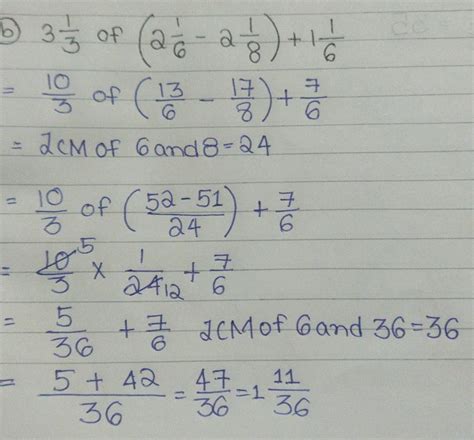 b) 3 1/3 of (2 1/6 - 2 1/8) + 1 1/6
= 10/3 of (13/6 - 17/8) + 7/6
= LCM of 6 and 8 = 24
= 10/3 of (52 - 51/24) + 7/6
= 10 5/3 × 1/24 12 + 7/6
= 5/36 + 7/6 LCM of 6 and 36 = 36
= 5 + 42/36 = 47/36 = 1 11/36